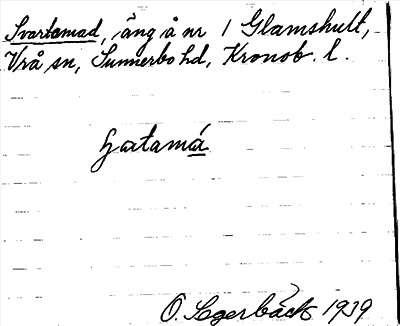 Svartemad, äng å nr 1 Glamshult,
Vrå sn, Sunnerbo hd, Kronob. l.
O. Segerbäck 1939